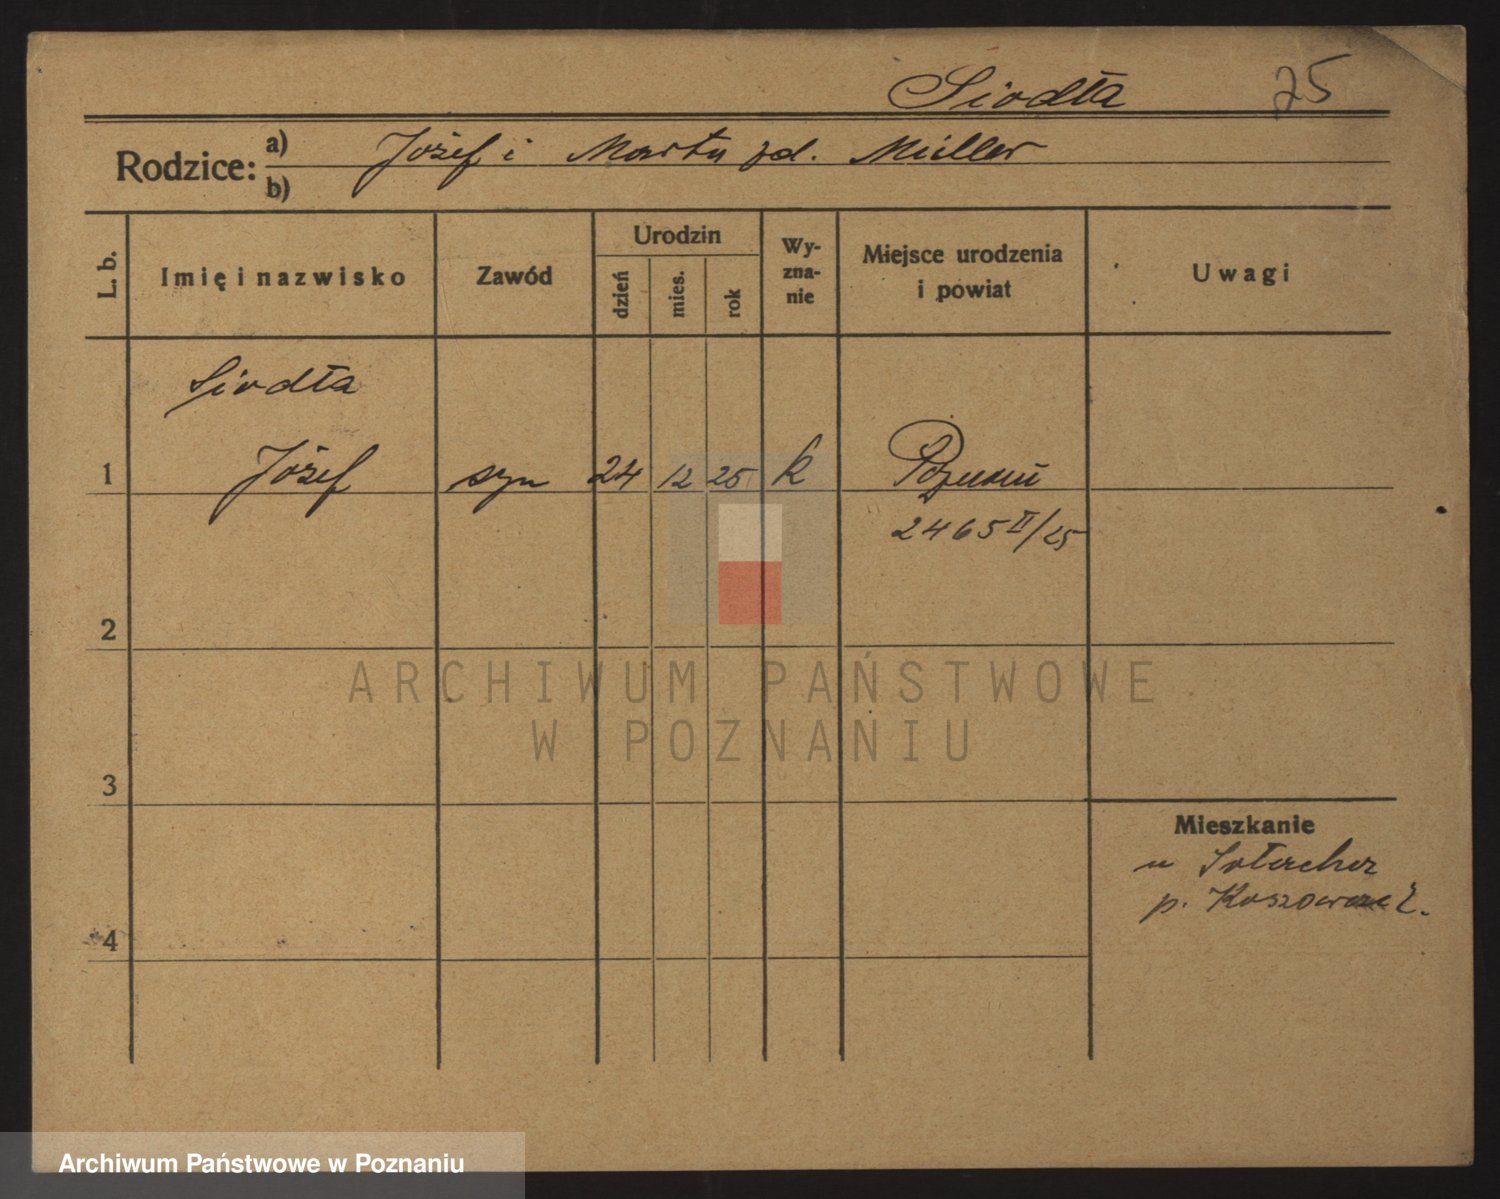 Siodła 25
Rodzice: a) Józef i Marta zd. Müller
b)
L. b. Imię i nazwisko Zawód Urodzin dzień mies. rok Wy-zna-nie Miejsce urodzenia i powiat Uwagi
Siodła
1 Józef syn 24 12 25 k Poznań
2465 II/25
2
3
Mieszkanie
u
p.
4
ARCHIWUM PAŃSTWOWE
W POZNANIU
Archiwum Państwowe w Poznaniu